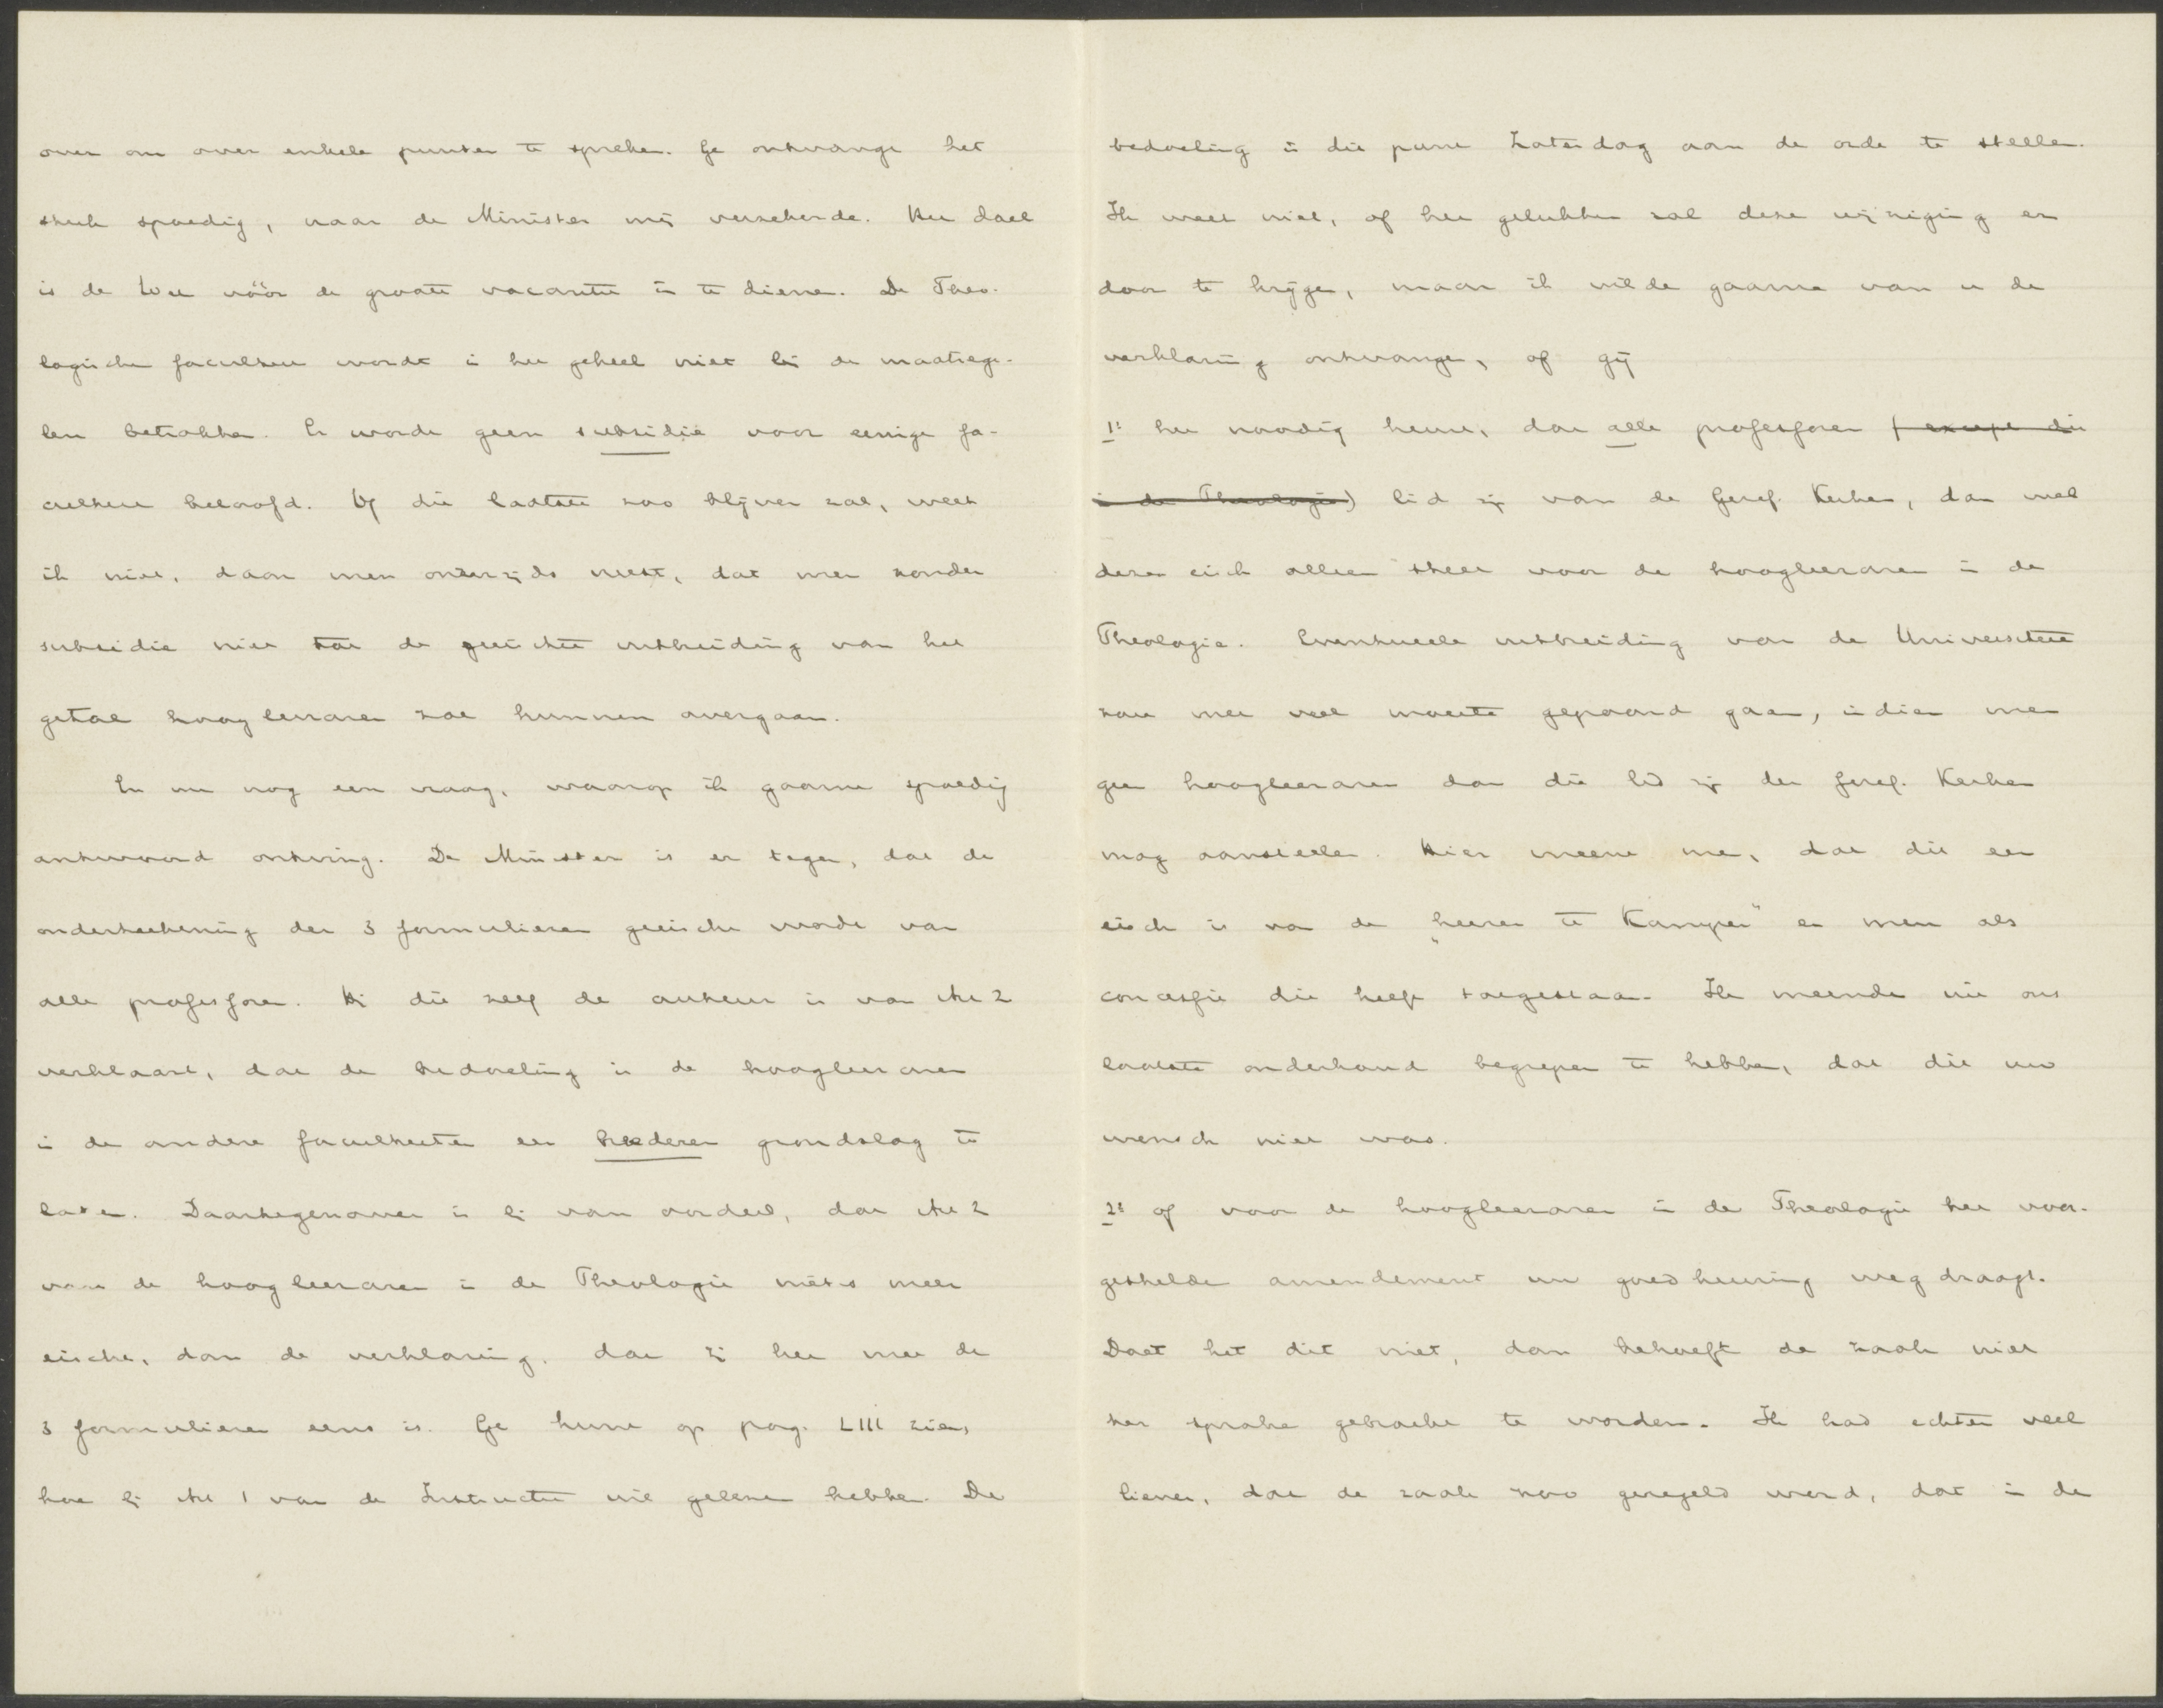 over om over enkele punten te spreken. Ge ontvangt het
stuk spoedig, naar de Minister mij verzekerde. Het doel
is de Wet vóór de groote vacantie in te dienen. De Theo-
logische faculteit wordt in het geheel niet bij de maatrege-
len betrokken. Er wordt geen subsidie voor eenige fa-
culteit beloofd. Of dit laatste zoo blijven zal, weet
ik niet, daar men onderzijds weet, dat men zonder
subsidie niet tot de geeischte uitbreiding van het
getal hoogleeraren zal kunnen overgaan.
En nu nog een vraag, waarop ik gaarne spoedig
antwoord ontving. De Minister is er tegen, dat de
onderteekening der 3 formulieren geeischt wordt van
alle professoren. Hij die zelf de auteur is van Art 2
verklaart, dat de bedoeling is de hoogleeraren
in de andere faculteiten een breederen grondslag te
laten. Daartegenover is hij van oordeel, dat Art 2
van de hoogleeraren in de Theologie niets meer
eischt, dan de verklaring, dat zij het met de
3 formulieren eens is. Ge kunt op pag. LIII zien,
hoe hij Art 1 van de Instructie wil gelezen hebben. De
bedoeling is dit punt Zaterdag aan de orde te stellen.
Ik weet niet, of het gelukken zal deze wijziging er
door te krijgen, maar ik wilde gaarne van u de
verklaring ontvangen, of gij
1° het noodig keurt, dat alle professoren (except die
in de Theologie) lid zij van de Geref. Kerken, dan wel
dezen eisch alleen stelt voor de hoogleeraren in de
Theologie. Eventueele uitbreiding van de Universiteit
zou met veel moeite gepaard gaan, indien men
geen hoogleeraren dan die lid zij der Geref. Kerken
mag aanstellen. Hier meent men, dat dit een
eisch is van de „heeren te Kampen" en men als
concessie dit heeft toegestaan. Ik meende uit ons
laatste onderhoud begrepen te hebben, dat dit uw
wensch niet was.
2° of voor de hoogleeraren in de Theologie het voor-
gestelde amendement uw goedkeuring wegdraagt.
Doet het dit niet, dan behoeft de zaak niet
ter sprake gebracht te worden. Ik had echter veel
liever, dat de zaak zoo geregeld werd, dat in de